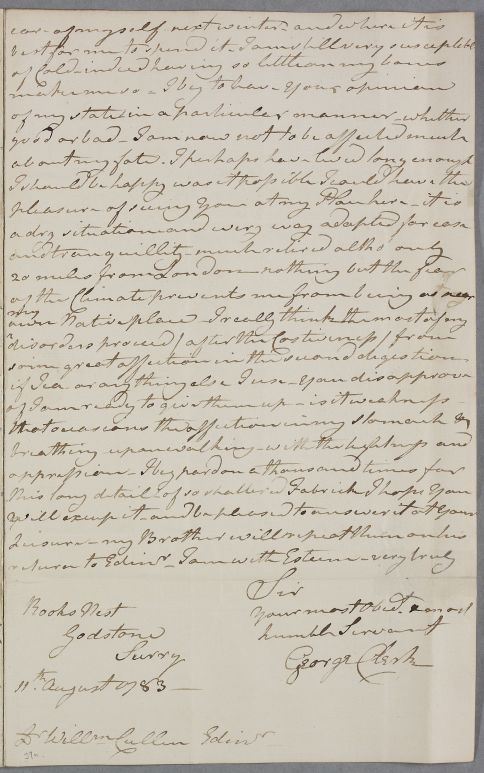 care of myself next winter - and where it is
best for me to spend it. I am still very susceptible
of Cold - indeed having so little on my bones
makes me so - I beg to have Your opinion
of my state in a particular manner - whether
good or bad - I am now not to be affected much
about my fate. I perhaps have lived long enough
I should be happy was it possible I could have the
pleasure of seeing You at my Place here - it is
a dry situation and every way adapted for ease
and tranquillity - much retired altho only
20 miles from London - nothing but the fear
of the Climate prevents me from being at near
my
own Native place - I really think the most of my
disorders proceed / after the Costiveness / from
some great affection in the second digestion
if Tea or any thing else I use - You disapprove
of I am ready to give them up - is it weakness -
that occasions the affection in my stomach &
breathing upon walking - with the tightness and
oppression - I beg pardon a thousand times for
this long detail - of so shattered Fabrick I hope You
will excuse it - and be pleased to answer it at Your
Leisure - my Brother will repeat them on his
return to Edinr. I am with Esteem - very truly
Sir
Your most Obedt. and most
humble Servant
George Clerk
Rooks Nest
Godstone
Surry
11th. August 1783 -
Dr Willm Cullen Edinr